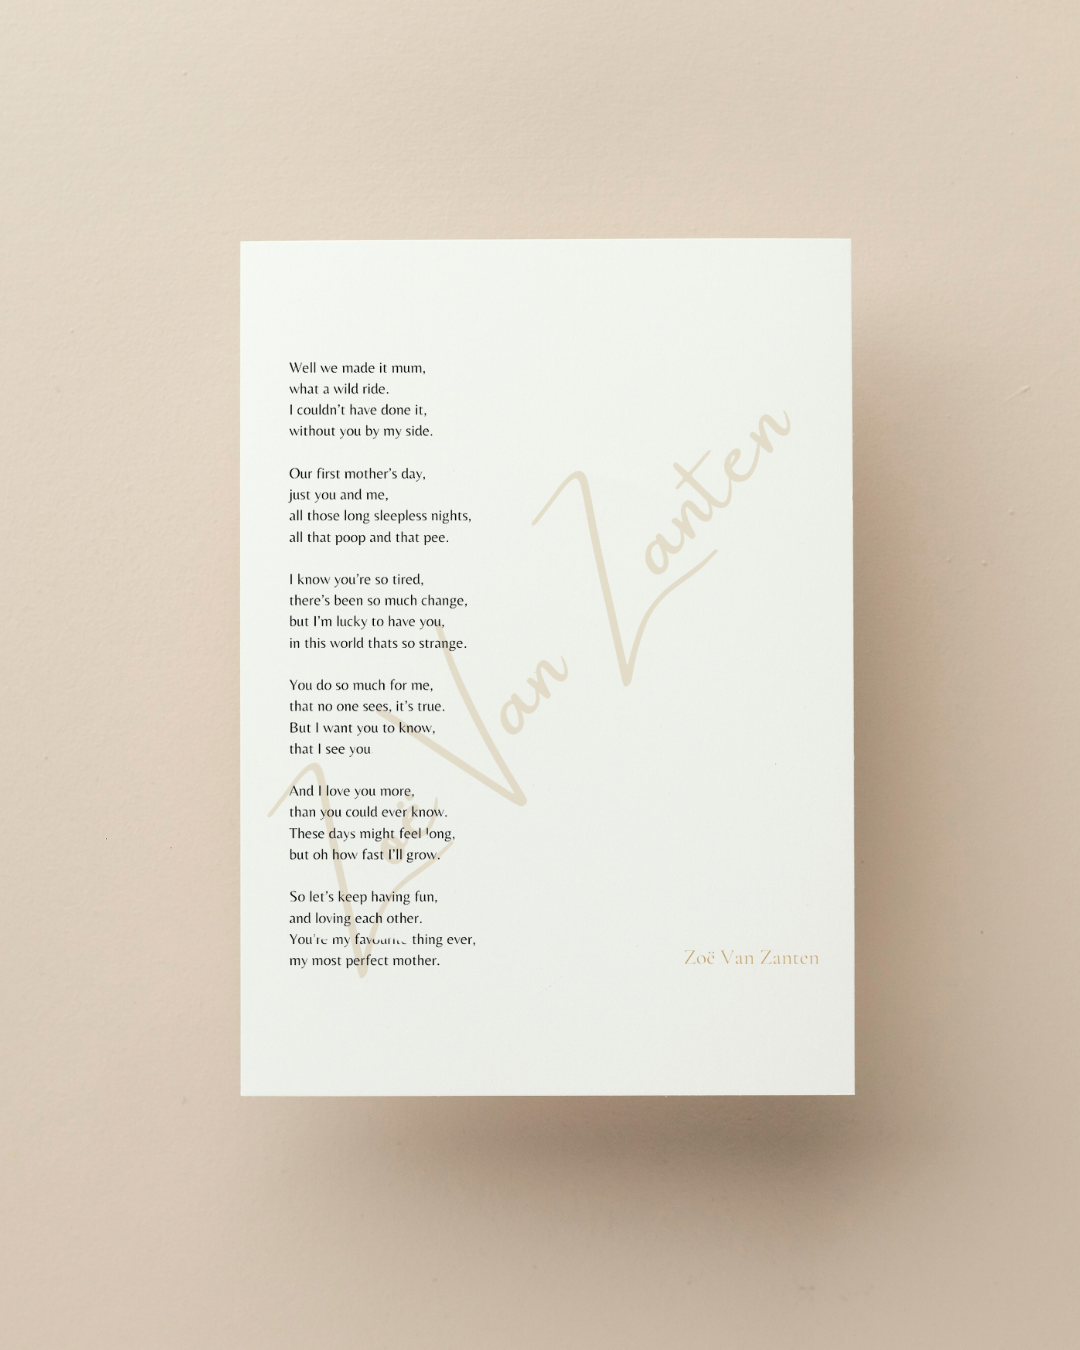 Well we made it mum,
what a wild ride.
I couldn't have done it,
without you by my side.

Our first mother's day,
just you and me,
all those long sleepless nights,
all that poop and that pee.

I know you're so tired,
there's been so much change,
but I'm lucky to have you,
in this world thats so strange.

You do so much for me,
that no one sees, it's true.
But I want you to know,
that I see you

And I love you more,
than you could ever know.
These days might feel long,
but oh how fast I'll grow.

So let's keep having fun,
and loving each other.
You're my favourite thing ever,
my most perfect mother.

Zoë Van Zanten
Zoë Van Zanten